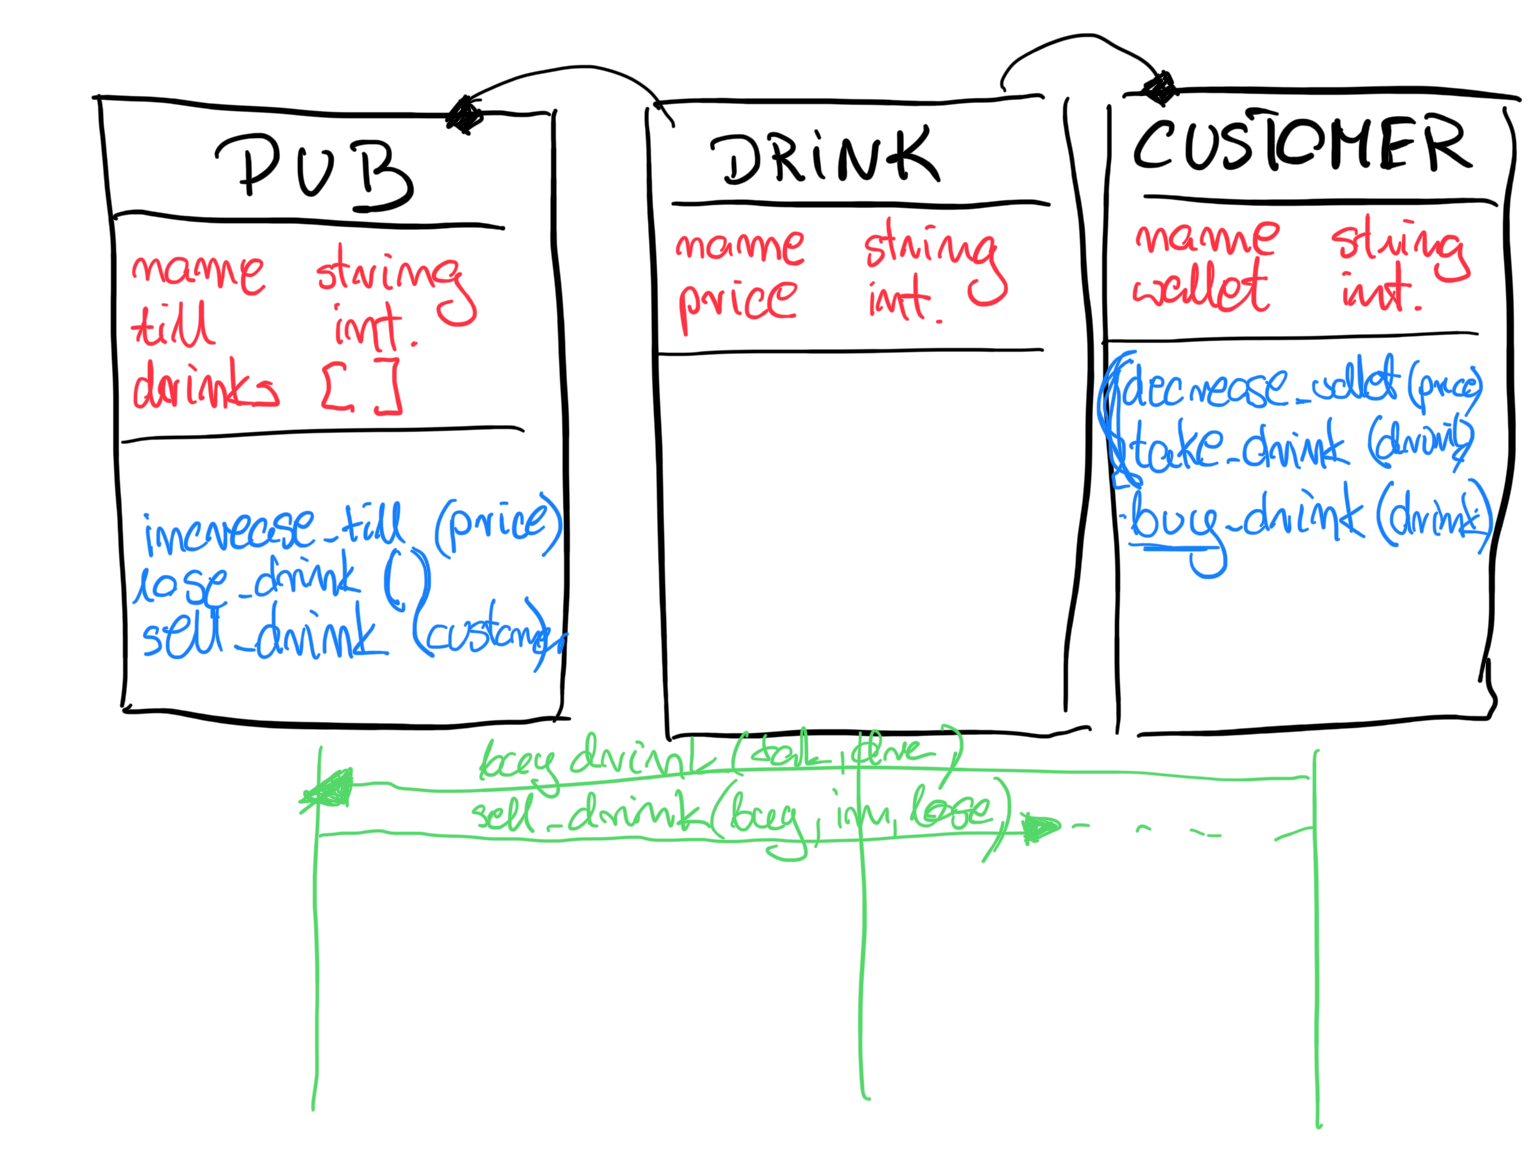 PUB
name string
till int.
drinks [ ]
increase_till (price)
lose_drink ( )
sell_drink (customer)
DRINK
name string
price int.
CUSTOMER
name string
wallet int.
decrease_wallet (price)
take_drink (drink)
buy_drink (drink)
buy drink (
sell_drink (buy, inu, lose)